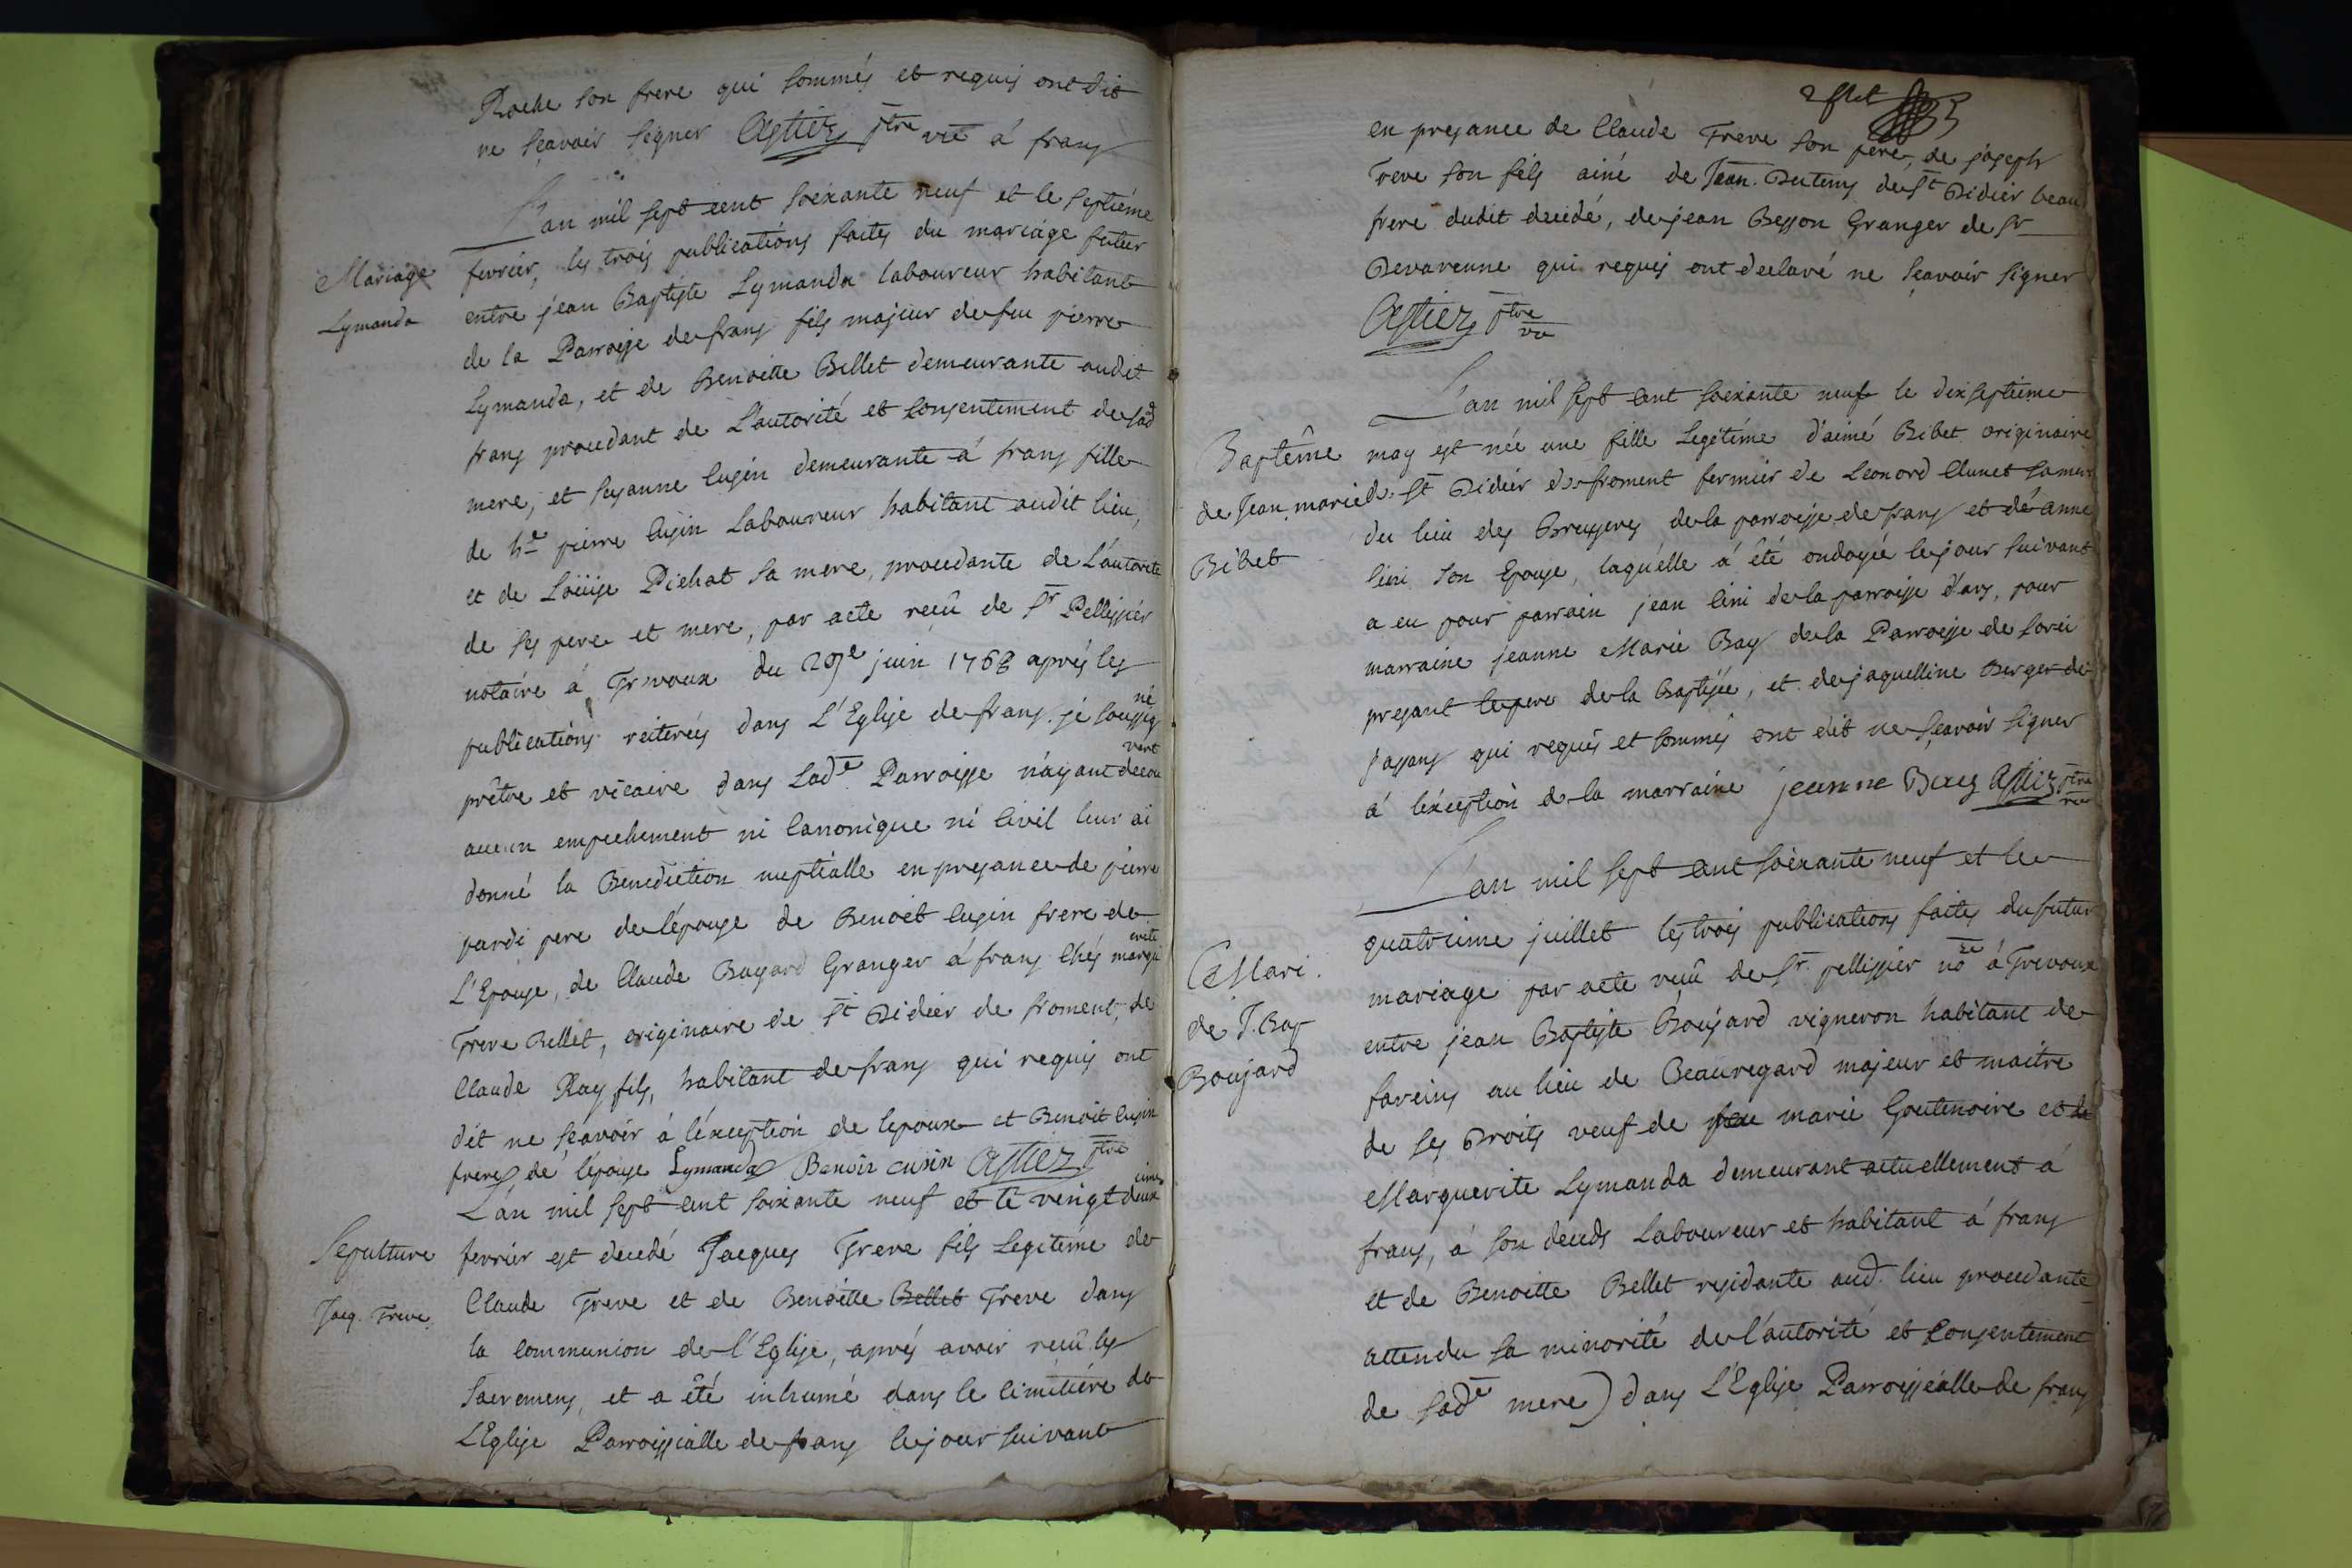 Roche son frere qui sommés et requis ont dit
ne sçavoir signer Astier ptre vic à frans
L'an mil sept cent soixante neuf et le septiéme
Mariage
Lymanda
fevrier, les trois publications faites du mariage futur
entre jean Baptiste Lymanda laboureur habitant
de la Parroisse de frans fils majeur de feu pierre
Lymanda, et de Benoitte Bellet demeurante audit
frans procedant de L'autorité et consentement de sad
mere, et susanne cusin demeurante à frans fille
de he pierre cusin Laboureur habitant audit lieu,
et de Loüise Pichat sa mere, procedante de L'autorité
de ses pere et mere, par acte reçû de Sr Pellissier
notaire à Trevoux du 29e juin 1768 aprés les
publications reiterées dans L'Eglise de frans. je soussigné
prêtre et vicaire dans Lade Parroisse n'ayant decouvert
aucun empechement ni canonique ni civil leur ai
donné la Benediction nuptialle en presance de pierre
pere de lépouse de Benoit cusin frere de
L'Epouse, de Claude Bayard Granger à frans chés marguerite
Treve Bellet, originaire de St Didier de froment, de
Claude Ray fils, habitant de frans qui requis ont
dit ne sçavoir à léxception de lepoux et Benoit cusin
frere de lépouse Lymanda Benoir cusin Astier ptre
L'an mil sept cent soixante neuf et le vingt deuxieme
Sepulture
Jacq. Treve.
fevrier est decedé Jacques Treve fils Legitime de
Claude Treve et de Benoitte Bellet Treve dans
la communion de l'Eglise, aprés avoir reçû les
sacremens, et a été inhumé dans le cimitiére de
L'Eglise Parroissialle de frans le jour suivant
en presance de Claude Treve son pere, de joseph
Treve son fils ainé de Jean Dutems de St Didier beau
frere dudit decedé, de jean Besson Granger de Sr
Devavenne qui requis ont declaré ne sçavoir signer
Astier ptre vic
L'an mil sept cent soixante neuf le dixseptieme
Baptême
de Jean. marie
Bibet
may est née une fille Legitime d'aimé Bibet originaire
de St Didier de froment fermier de Leonord Clunet
du lieu des Bruyeres de la parroisse de frans et de anne
Cini son Epouse, laquelle à été ondoyée le jour suivant
a eu pour parrain jean Cini de la parroisse d'ars, pour
marraine jeanne Marie Bay de la Parroisse de
presant le pere de la Baptisée, et de jaquelline Berger de
Jassans qui requis et sommés ont dit ne sçavoir signer
à léxception de la marraine jeanne Bay Astier ptre vic
L'an mil sept cent soixante neuf et le
Mari.
de J. Bap
Boujard
quatrieme juillet les trois publications faites du futur
mariage par acte reçû de Sr. pellissier nore à Trevoux
entre jean Baptiste Boujard vigneron habitant de
fareins au lieu de Beauregard majeur et maitre
de ses Droits veuf de feu marie Goutenoire et de
Marguerite Lymanda demeurant actuellement à
frans, à son décéds Laboureur et habitant à frans
et de Benoitte Bellet residante aud. lieu procedante
attendu sa minorité de l'autorité et consentement
de sade mere) dans L'Eglise Parroissialle de frans